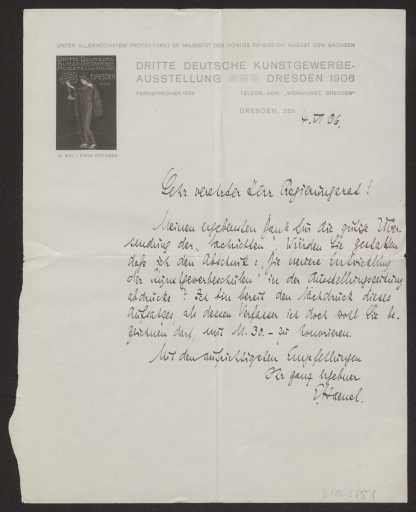 UNTER ALLERHÖCHSTEM PROTEKTORAT SR. MAJESTÄT DES KÖNIGS FRIEDRICH AUGUST VON SACHSEN
DRITTE DEUTSCHE KUNSTGEWERBE-
AUSSTELLUNG DRESDEN 1906
FERNSPRECHER
TELEGR.-ADR.: „WERKKUNST, DRESDEN“
DRESDEN, DEN
4. VI 06.
DRITTE DEUTSCHE
KUNSTGEWERBE
AUSSTELLUNG
DRESDEN
1906
Sehr verehrter Herr Regierungsrat!
Meinen ergebensten Dank für die gütige Über-
sendung der Nachrichten. Würden Sie gestatten,
daß ich den Abschnitt: „Die weitere Entwicklung
der Kunstgewerbeschulen“ in der Ausstellungszeitung
abdrucke? Ich bin bereit den Nachdruck dieses
Aufsatzes als dessen Verfasser ich doch wohl Sie be-
zeichnen darf, mit M. 30.– zu honorieren.
Mit den aufrichtigsten Empfehlungen
Ihr ganz ergebner
E. Haenel.